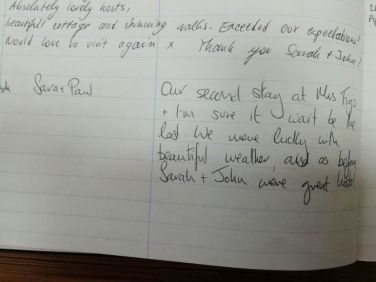 Absolutely lovely hosts,
beautiful cottage and stunning walks. Exceeded our expectations!
Would love to visit again x Thank you Sarah + John!
Sara + Paul
Our second stay at Mrs Figs
+ I'm sure it wait be the
last. We were lucky with
beautiful weather, and as before
Sarah + John were great hosts!